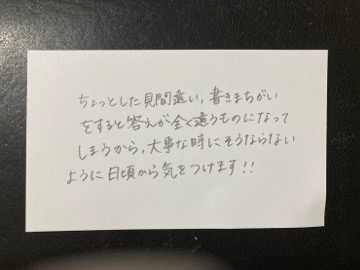 ちょっとした見間違い，書きまちがい
をすると答えが全く違うものになって
しまうから，大事な時にそうならない
ように日頃から気をつけます!!